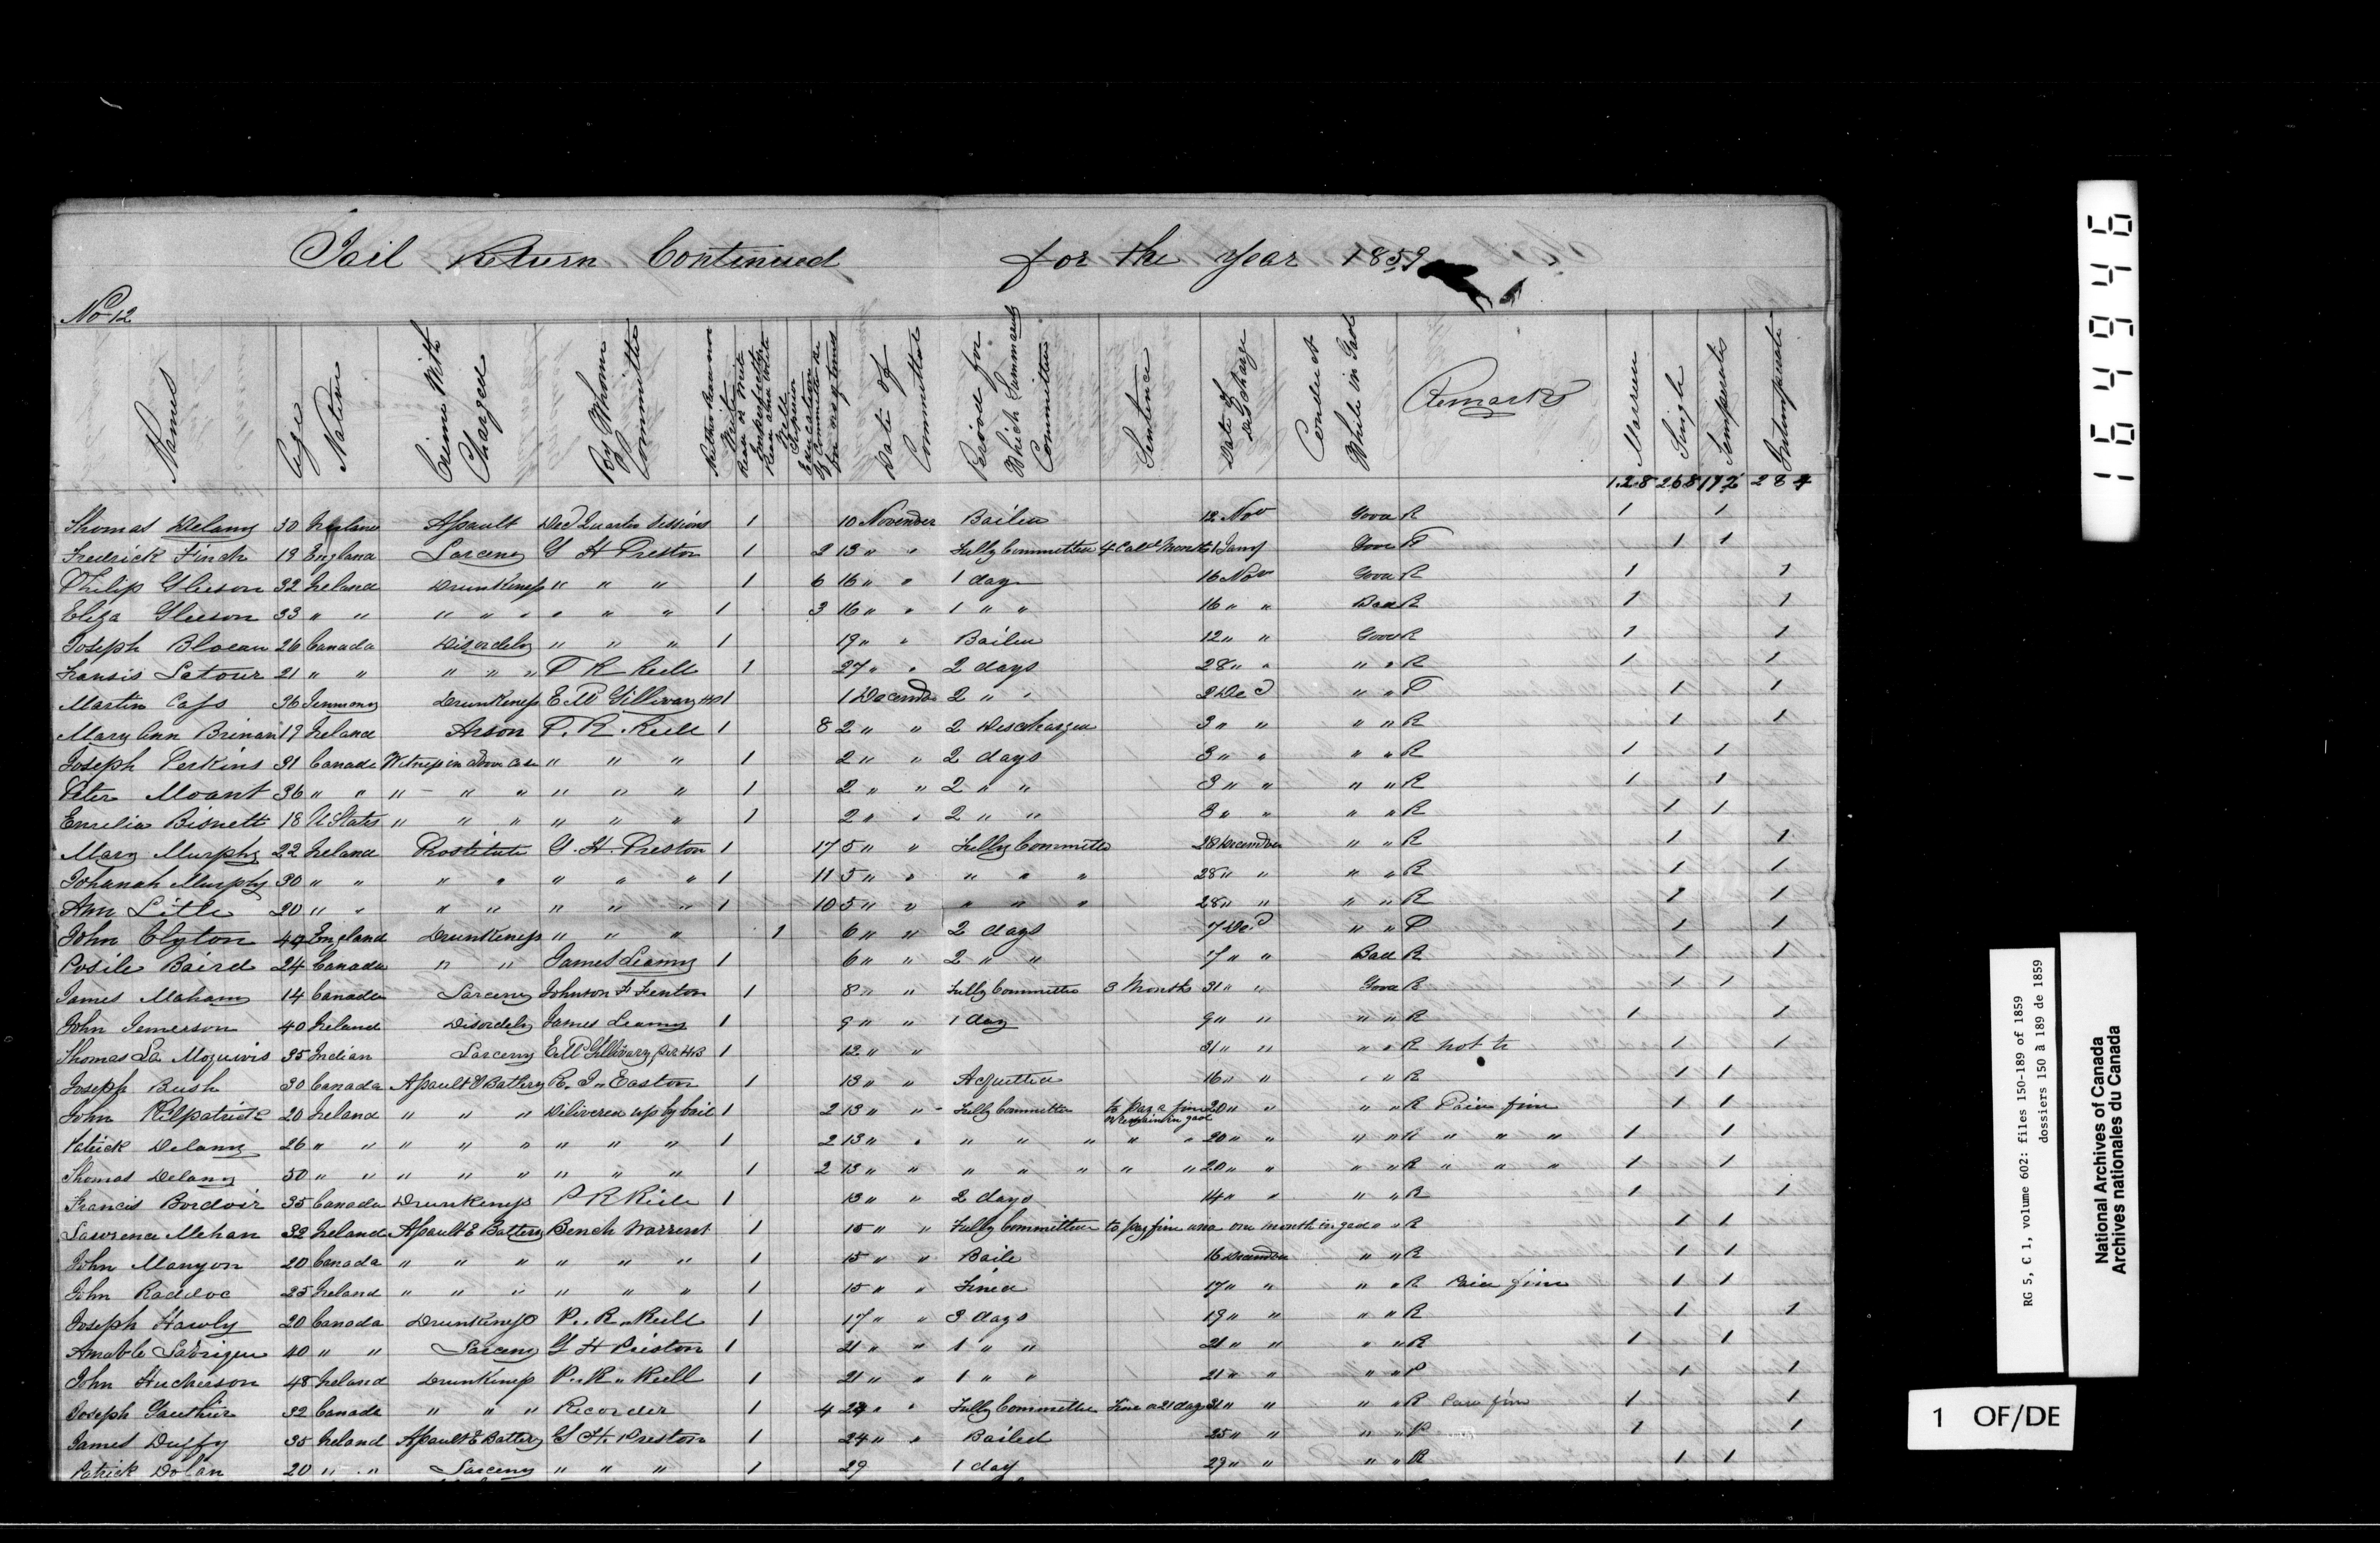 Jail Return Continued for the Year 1859
No 12
Names Age Native Crime With Charged By Whom Committed Neither Read nor Write Read or Write Imperfectly Read and Write Well Superior Education If Committed before how many times Date of Committal Period for Which Summarily Committed Sentence Date of Discharge Conduct While in Gaol Remarks Married Single Temperate Intemperate
128 268 112 284
Thomas Delany 30 Ireland Assault Dec Quarter Sessions 1 10 November Bailed 12 Nov Good R 1 1
Fredrick Finch 19 England Larceny G H Preston 1 2 13 " " Fully Committed 4 Calr Month 1 Jany Good P 1 1
Philip Gleeson 32 Ireland Drunkeness " " " 1 6 16 " " 1 day 16 Nov Good R 1 1
Eliza Gleeson 33 " " " " " " " " 1 3 16 " " 1 " " 16 " " Bad R 1 1
Joseph Blocau 26 Canada Disordely " " " 1 19 " " Bailed 12 " " Good R 1 1
Fransis Latour 21 " " " " " P R Reill 1 27 " " 2 days 28 " " " " R 1 1
Martin Cass 36 Jermony Drunkeness E Mc Gillivary 1 1 Docember 2 " " 2 Dec " " P 1 1
Mary Ann Brinan 19 Ireland Arson P. R. Reill 1 8 2 " " 2 Discharged 3 " " " " R 1 1
Joseph Perkins 31 Canada Witness in above Case " " " 1 2 " " 2 days 3 " " " " R 1 1
Peter Moant 36 " " " " " " " " 1 2 " " 2 " " 3 " " " " R 1 1
Emelia Bisnett 18 U States " " " " " " 1 2 " " 2 " " 3 " " " " R 1 1
Mary Murphy 22 Ireland Prostitute G. H. Preston 1 17 5 " " Fully Committed 28 December " " R 1 1
Johanah Murphy 30 " " " " " " " 1 11 5 " " " " " 28 " " " " R 1 1
Ann Litle 20 " " " " " " " 1 10 5 " " " " " 28 " " " " R 1 1
John Clyton 49 England Drunkeness " " " 1 6 " " 2 days 7 Dec " " P 1 1
Posile Baird 24 Canada " " James Leamy 1 6 " " 2 " " 7 " " Bad R 1 1
James Mahany 14 Canada Larceny Johnson F Fenton 1 8 " " Fully Committed 3 Month 31 " " Good R 1 1
John Jemerson 40 Ireland Disordely James Leamy 1 9 " " 1 day 9 " " " " R 1 1
Thomas La Moquiwis 35 Indian Larceny E Mc Gillivary 1 12 " " 31 " " " " R not tr 1 1
Joseph Bush 30 Canada Assault & Battery R. J. Easton 1 13 " " Acquitted 16 " " " " R 1 1
John Kilpatrick 20 Ireland " " " Delivered up by bail 1 2 13 " " Fully Committed to Pay a fine or Remain in gaol 20 " " " " R Paid fine 1 1
Patrick Delany 26 " " " " " " " " 1 2 13 " " " " " " " 20 " " " " R " " " 1 1
Thomas Delany 50 " " " " " " " " 1 2 13 " " " " " " " 20 " " " " R " " " 1 1
Francis Bordoir 35 Canada Drunkeness P R Riele 1 13 " " 2 days 14 " " " " R 1 1
Lawrence Mehan 32 Ireland Assault & Battery Bench Warrent 1 15 " " Fully Committed to pay fine and one month in gaol " " R 1 1
John Manyon 20 Canada " " " " " " 1 15 " " Baile 16 December " " R 1 1
John Raddoc 25 Ireland " " " " " " 1 15 " " Fined 17 " " " " R Paid fine 1 1
Joseph Hawly 20 Canada Drunkeness P. R. Reill 1 17 " " 3 days 19 " " " " R 1 1
Amable Labrigue 40 " " Larceny G H Priston 1 21 " " 1 " " 21 " " " " R 1 1
John Hucherson 48 Ireland Drunkeness P. R. Reill 1 21 " " 1 " " 21 " " " " P 1 1
Joseph Gauthier 32 Canada " " " Recorder 1 4 24 " " Fully Committed Fine or 21 days 31 " " " " R Paid fine 1 1
James Duffy 35 Ireland Assault & Battery G H. Preston 1 24 " " Bailed 25 " " " " P 1 1
Patrick Dolan 20 " " Larceny " " " 1 29 1 day 29 " " " " R 1 1
164946
RG 5, C 1, volume 602: files 150-189 of 1859
dossiers 150 à 189 de 1859
National Archives of Canada
Archives nationales du Canada
1 OF/DE